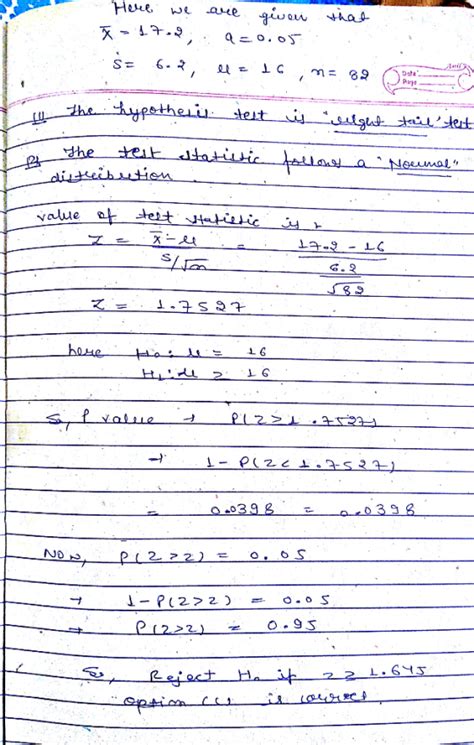 Here we are given that
x̄ = 17.2, a = 0.05
S = 6.2, μ = 16, n = 82
Date
Page
(1) The hypothesis test is "right tail" test
The test statistic follows a "Normal"
distribution.
value of test statistic is
Z = x̄-μ / S/√n = 17.2 - 16 / 6.2/√82
Z = 1.7527
here H₀: μ = 16
H₁: μ > 16
So, P value → P(Z>1.7527)
→ 1 - P(Z< 1.7527)
= 0.0398 = 0.0398
Now, P(Z>z) = 0.05
→ 1-P(Z>z) = 0.05
→ P(Z>z) = 0.95
So, Reject H₀ if z ≥ 1.645
option (c) is correct.